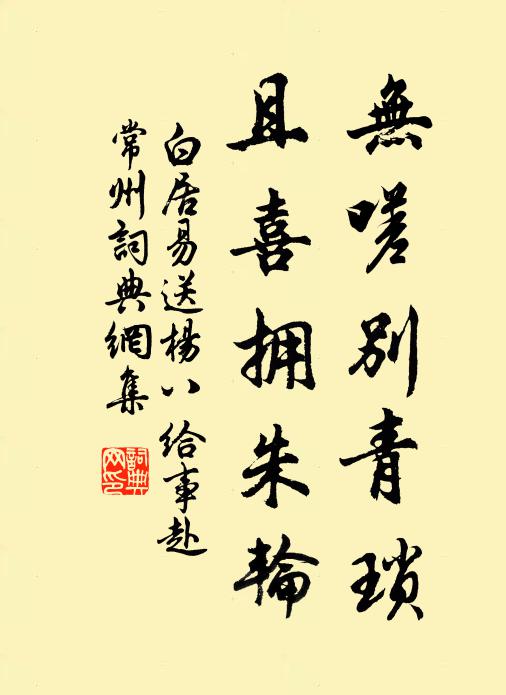 無嗟別青瑣
且喜拥朱輪
白居易送楊八給事赴
常州詞典網集
詞典网印